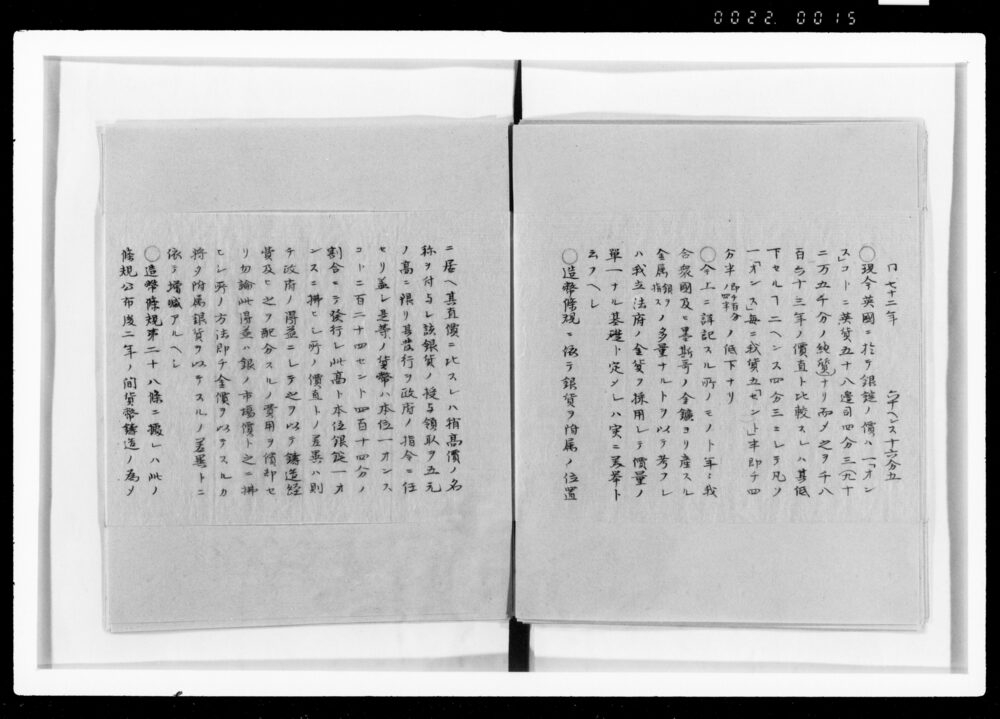 0022. 0015
同七十二年 六十ペンス十六分五
◯現今英國ニ於テ銀錠ノ價ハ一「オン
ス」コトニ英貨五十八邊司四分三(九十
二万五千分ノ純質)ナリ而メ之ヲ千八
百七十三年ノ價直ト比較スレハ其低
下セルヿ二ペンス四分三ニシテ凡ソ
一「オンス」毎ニ我貨五「セント」半即チ四
分半(即チ百分ノ四半)ノ低下ナリ
◯今上ニ詳記スル所ノモノト年々我
合衆國及ヒ墨斯哥ノ金鑛ヨリ産スル
金属(銀ヲ指ス)ノ多量ナルトヲ以テ考フレ
ハ我立法府ノ金貨ヲ採用シテ價量ノ
單一ナル基礎ト定メシハ実ニ美擧ト
云フヘシ
◯造幣條規ニ依テ銀貨ヲ附属ノ位置
ニ居ヘ其直價ニ比スレハ稍高價ノ名
称ヲ付与シ該銀貨ノ授与領取ヲ五元
ノ高ニ限リ且發行ヲ政府ノ指令ニ任
セリ並シ是等ノ貨幣ハ本位一オンス
コトニ百二十四セント四百十四分ノ
割合ニテ發行シ此高ト本位銀錠一オ
ンスニ拂ヒシ所ノ價直トノ差異ハ則
チ政府ノ得益ニシテ之ヲ以テ鋳造経
費及ヒ之ヲ配分スルノ費用ヲ償却セ
リ勿論此得益ハ銀ノ市場價ト之ニ拂
ヒシ所ノ方法即チ金價ヲ以テスルカ
将タ附属銀貨ヲ以テスルノ差異トニ
依テ増減アルヘシ
◯造幣條規第二十八條ニ據レハ此ノ
條規公布後二年ノ間貨幣鋳造ノ為メ